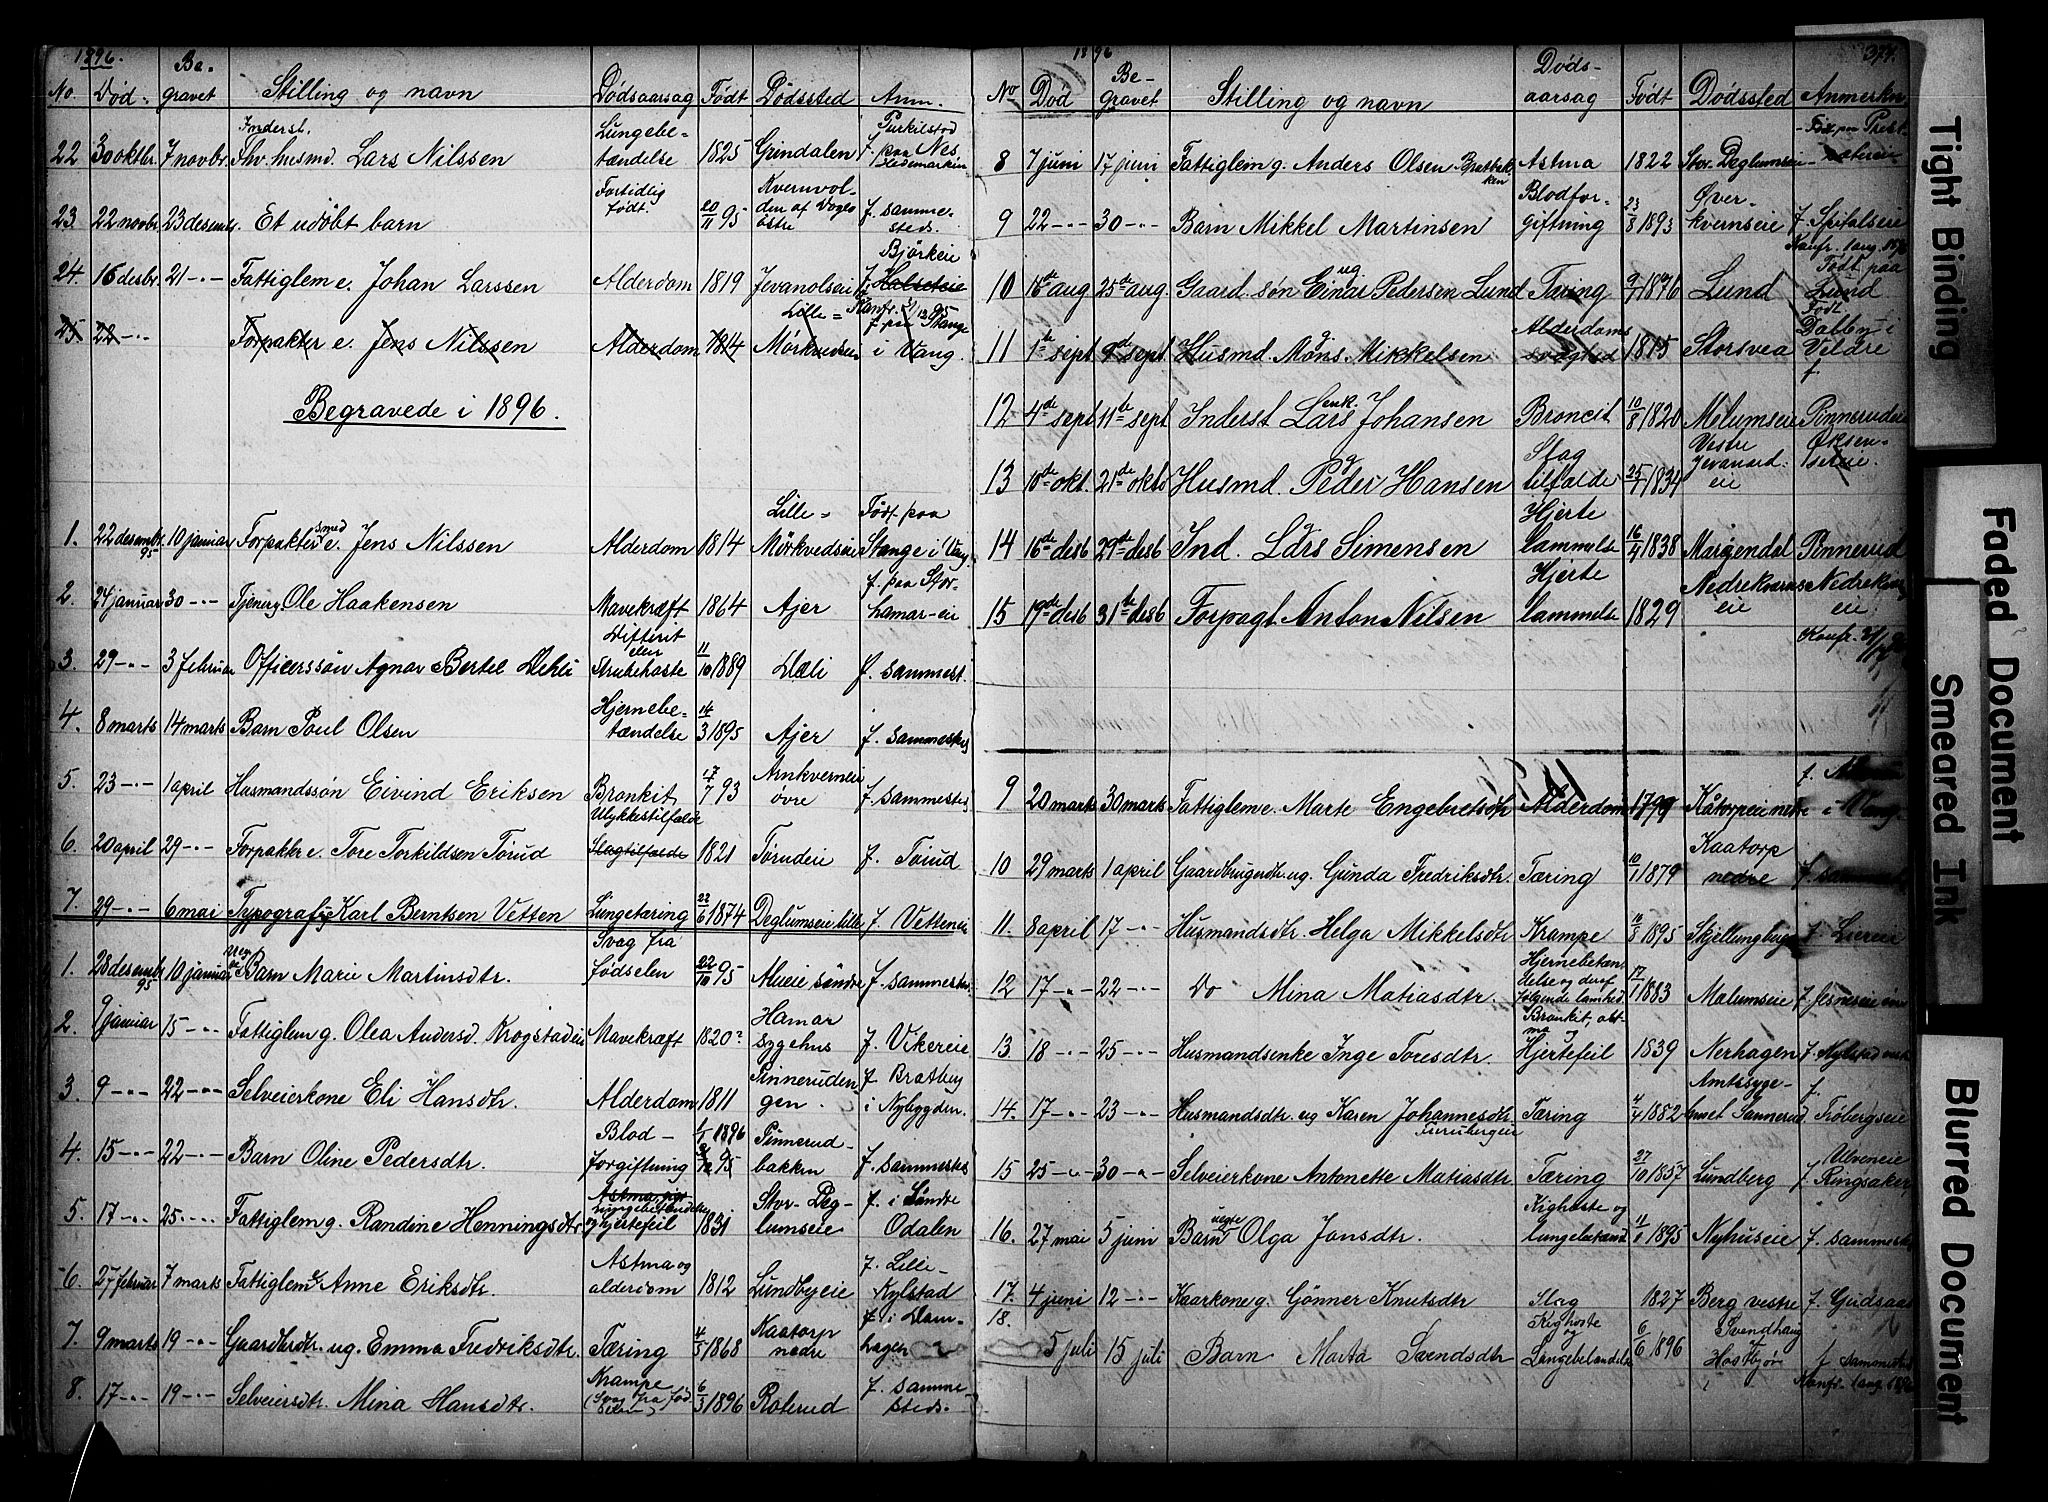 1896.
No. Død. Be-gravet Stilling og navn Dødsaarsag Født Dødssted Anm.
22 30 oktbr. 7 novbr. Inderst. Fhv. husmd. Lars Nilssen Lungebe-tændelse 1825 Grindalen f. paa Nes Hedemarken
23. 22 novbr. 23 desembr. Et udøbt barn Fortidlig født. 20/11 95 Kvernvol-den af Voges østre f. samme-steds.
24. 16 desbr. 21 -"- Fattiglem e. Johan Larssen Alderdom 1819 Jevanolseie f. Halseteie Bjørkeie
25 22 -"- Forpakter e. Jens Nilssen Alderdom 1814 Lille-Mørkvedseie f. paa Stange i Vang.
Begravede i 1896.
1. 22 desembr. 95 10 januar Forpakter smed e. Jens Nilssen Alderdom 1814 Lille-Mørkvedseie Født paa Stange i Vang
2. 24 januar 30 -"- Tjener g. Ole Haakensen Mavekræft 1864 Ajer f. paa Stor-hamar-eie
3. 29 -"- 3 februar Officerssøn Agnar Bertel Dehli Difterit eller Strubehoste 11/10 1889 Dæli f. sammest.
4. 8 marts 14 marts Barn Poul Olsen Hjernebe-tændelse 14/3 1895 Ajer f. sammesteds
5. 23 -"- 1 april Husmandssøn Eivind Eriksen Bronkit 17/7 93 Arnkverneie øvre f. sammestes
6. 20 april 29 -"- Forpakter e. Tore Torkildsen Tørud Ulykkestilfælde Slagtilfælde 1821 Tørudeie f. Tørud
7. 29 -"- 6 mai Typograf ug Karl Berntsen Vetten Lungetæring 22/6 1874 Deglumseie lille f. Vetteneie
1. 28 desembr. 95 10 januar Barn Marie Martinsdtr. Svag fra fødselen 22/10 95 Alueie søndre f. sammestes
2. 9 januar 15 -"- Fattiglem g. Olea Andersd. Krogstadeie Mavekræft 1820? Hamar sygehus f. Vikereie
3. 9 -"- 22 -"- Selveierkone Eli Hansdtr. Alderdom 1811 Pinneruden-gen. f. Bratberg i Nybygden.
4. 15 -"- 22 -"- Barn Oline Pedersdtr. Blod-forgiftning 1/1 1896 /12 95 Pinnerud-bakken f. sammestes
5. 17 -"- 25 -"- Fattiglem g. Randine Henningsdtr Astma, Lungebetændelse og Hjertefeil 1831 Stor-Deg-lumseie f. i Søndre Odalen
6. 27 februar 7 marts Fattiglem e. Anne Eriksdtr. Astma og alderdom 1812 Lundbyeie f. Lille-Kylstad
7. 9 marts 19 -"- Gaardbrdtr. ug. Emma Fredriksdtr. Tæring 4/5 1868 Kaatorp nedre f. i Dam-hagen
8. 17 -"- 19 -"- Selveiersdtr. Mina Hansdtr. Krampe (Svag fra fød-selen) 6/3 1896 Roterud f. samme-steds.
1896 374.
No Død Be-gravet Stilling og navn Døds-aarsag Født Dødssted Anmerkn
8 7 juni 17 juni Fattiglem g. Anders Olsen Bratbak-ken Astma 1822 Stor Deglumseie
9 22 -"- 30 -"- Barn Mikkel Martinsen Blodfor-giftning 23/8 1893 Øver-kvernseie f. Spitalseie
10 16de aug 25de aug. Gaard. søn ug Einar Pedersen Lund Tæring 9/7 1876 Lund Født paa Lund
11 1ste sept 9de sept Husmd. g Møns Mikkelsen Alderdoms svaghed 1815 Storsvea Født Dalby i Veldre
12 4de sept 11te sept Inderst enk. Lars Johansen Broncit 10/8 1820 Melumseie f Pinnerudeie
13 10de okt. 21de okto Husmd. g Peder Hansen Slag tilfælde 25/7 1834 Vestre Jevansrd.eie
14 16de desb 29de desb Ind. g Lars Simensen Hjerte lammelse 16/4 1838 Margendal Pinnerud
15 19de desb 31te desb Forpagt Anton Nilsen Hjerte lammelse 1829 Nedrekværns eie Nedrekværns eie
9 20 marts 30 marts Fattiglem e. Marte Engebretsdtr Alderdom 1799 Kåtorpeie nedre f. i Vang.
10 29 marts 1 april Gaardbrugerdtr. ug. Gunda Fredriksdtr. Tæring 10/1 1879 Kaatorp nedre f. sammest
11. 8 april 17 -"- Husmandsdtr. Helga Mikkelsdtr Krampe 16/5 1895 Skjellungberg f. Liereie
12 17 -"- 22 -"- Do Mina Matiasdtr. Hjernebetæn-delse og deraf følgende lamhed 17/1 1883 Malumseie
13 18 -"- 25 -"- Husmandsenke Inge Toresdtr. Bronkit, ast-ma og Hjertefeil 1839 Nerhagen f. Kylstad
14. 17 -"- 23 -"- Husmandsdtr. ug Karen Johannesdtr Furubergeie Tæring 4/4 1882 Amtssyge-huset Sannerud f. Frøbergseie
15 25 -"- 30 -"- Selveierkone Antonette Matiasdtr Tæring 27/10 1857 Lundberg f. Ulveneie Ringsaker
16. 27 mai 5 juni Barn uegte Olga Jonsdtr. Kighoste og lungebetænd. 11/1 1895 Nyhuseie f. sammestes
17. 4 juni 12 -"- Kaarkone g. Gønner Knutsdtr Slag 1827 Berg vestre f. Gudsaas
18. 5 juli 15 juli Barn Marta Svendsdtr Kighoste og Lungebetændelse 6/6 1896 Svendhaug Hostbjør f sammested
Konfr. 1 aug 1896
Tight Binding
Faded Document
Smeared Ink
Blurred Document